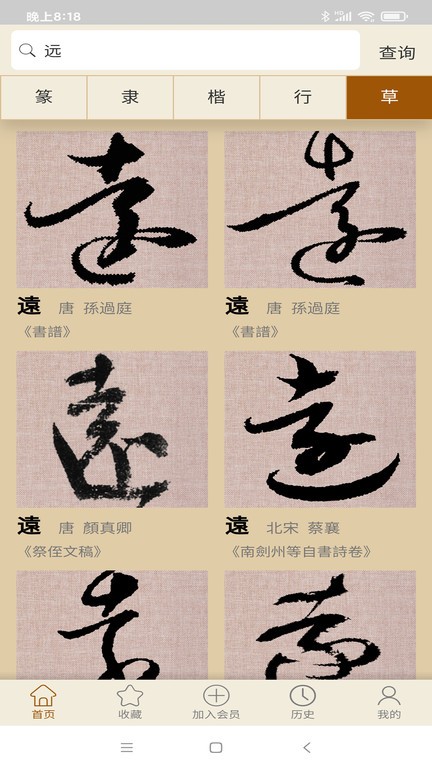 晚上8:18
远
查询
篆 隶 楷 行 草
遠 唐 孫過庭
《書譜》
遠 唐 孫過庭
《書譜》
遠 唐 顏真卿
《祭侄文稿》
遠 北宋 蔡襄
《南劍州等自書詩卷》
首页 收藏 加入会员 历史 我的